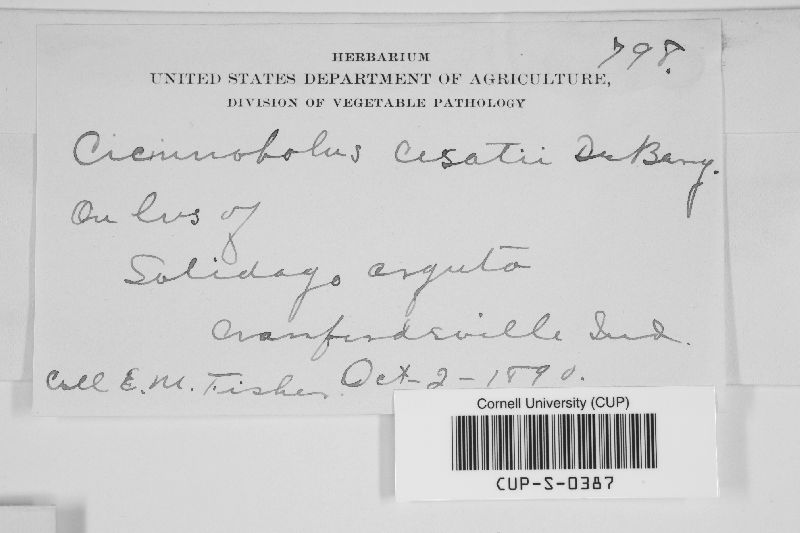 798.
HERBARIUM
UNITED STATES DEPARTMENT OF AGRICULTURE,
DIVISION OF VEGETABLE PATHOLOGY
Cicinnobolus Cesatii DeBary.
On lvs of
Solidago arguta
Crawfordsville Ind.
Coll E. M. Fisher. Oct-2-1890.
Cornell University (CUP)
CUP-S-0387